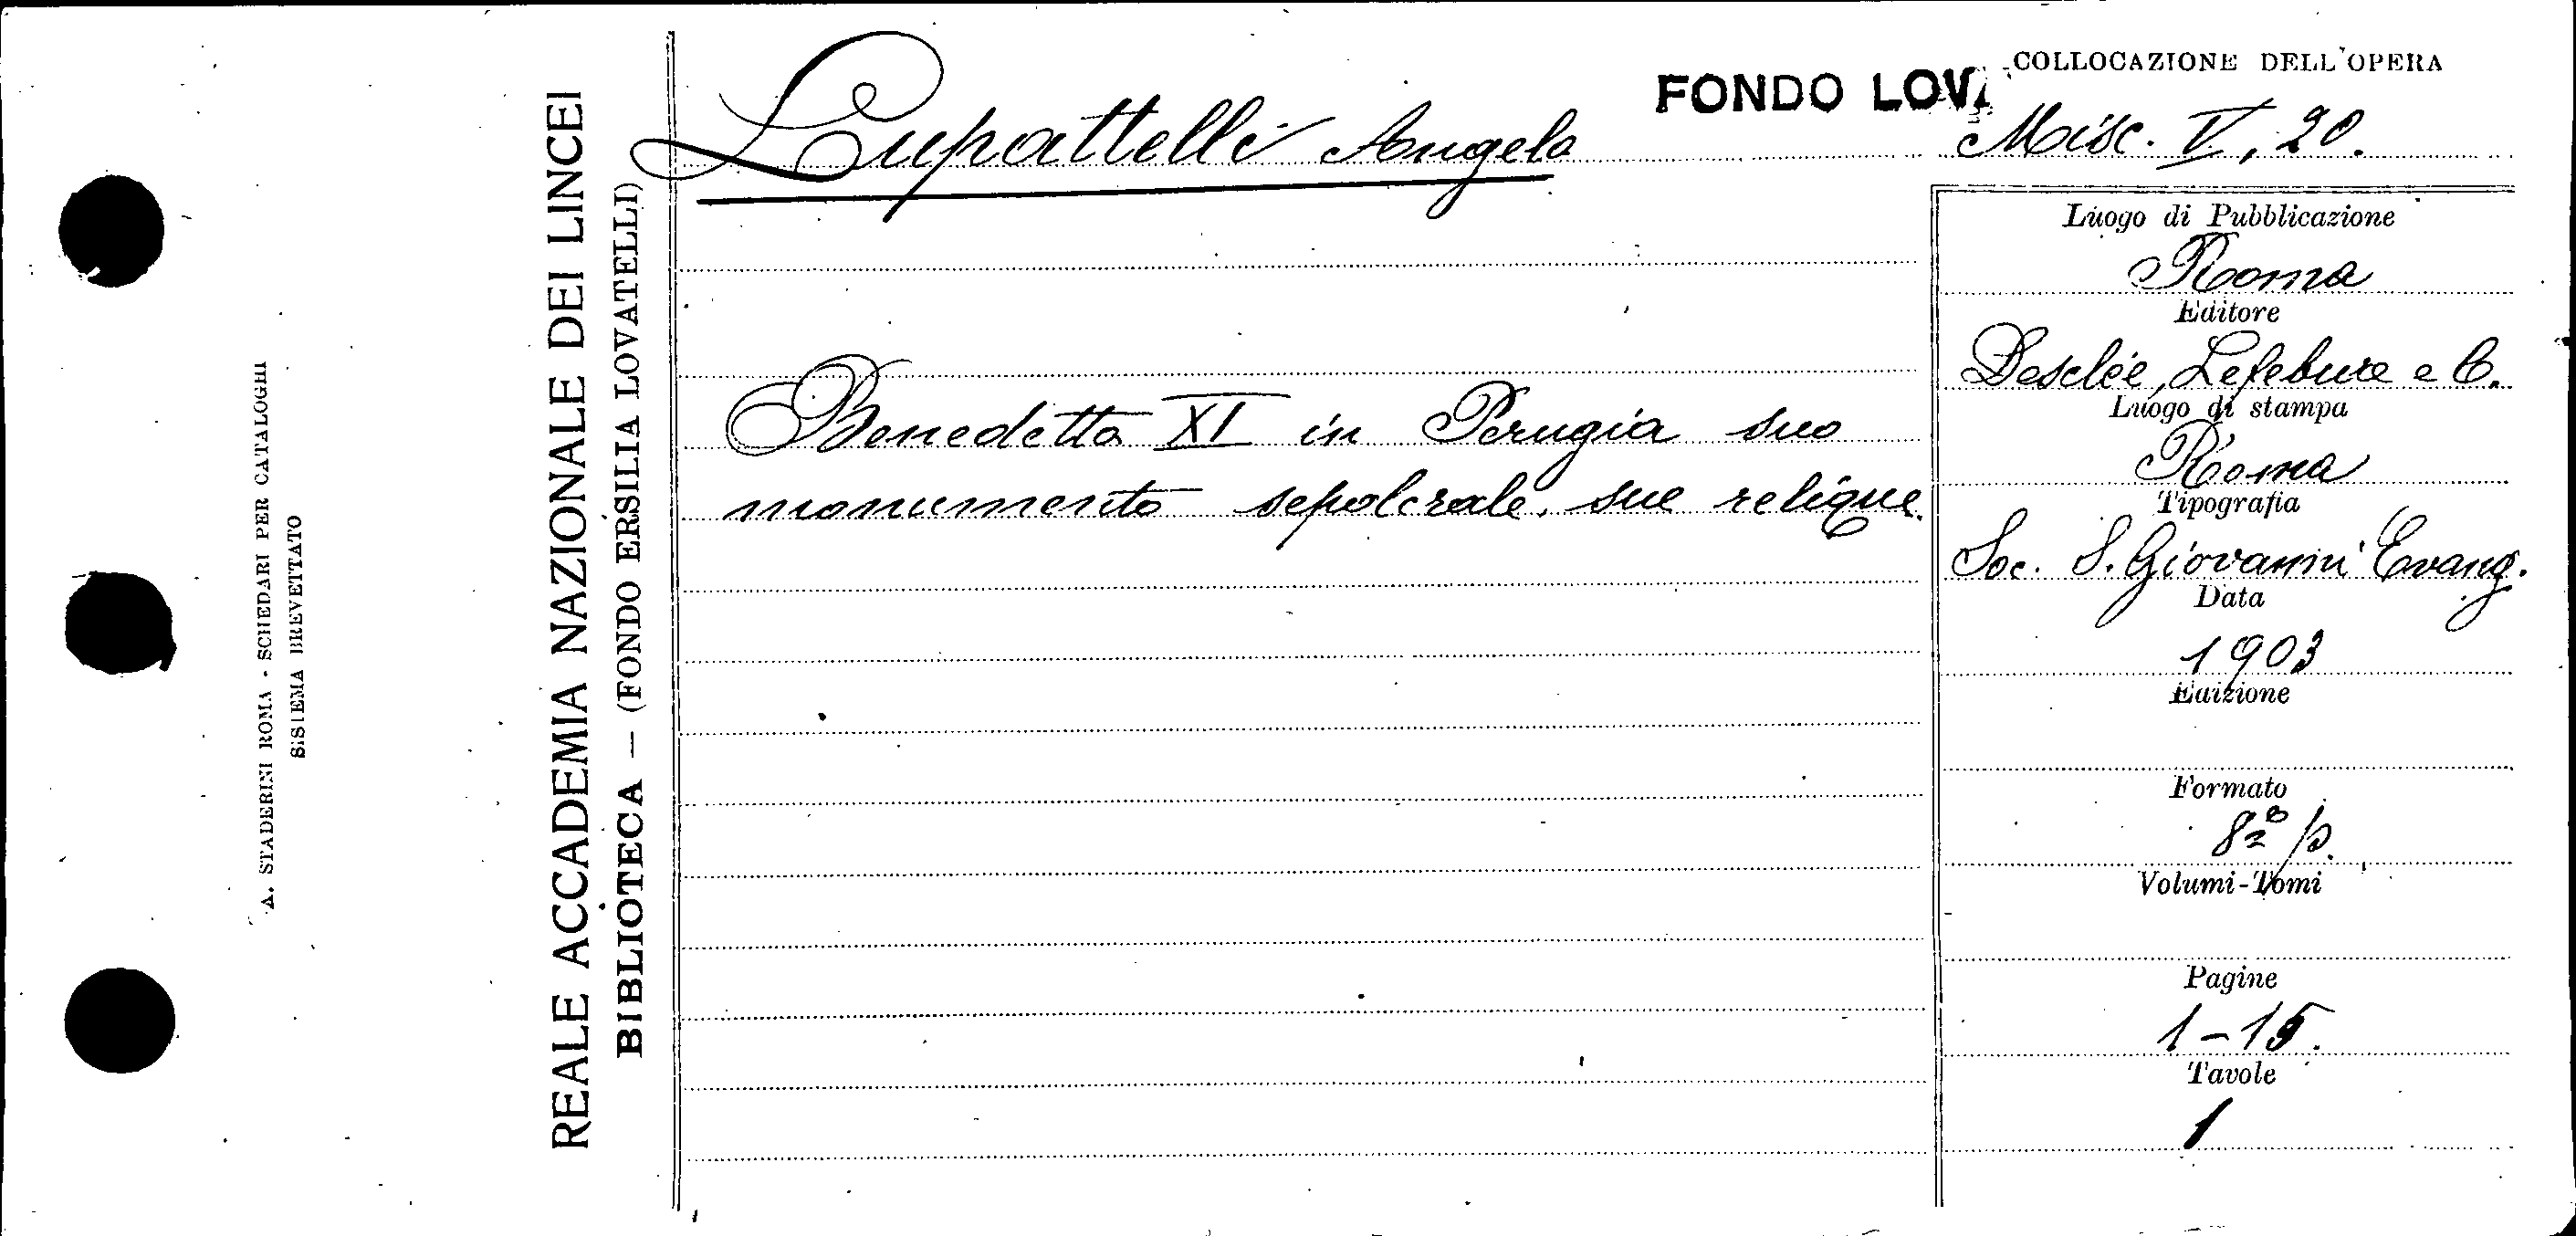 A. STADERINI ROMA - SCHEDARI PER CATALOGHI
SISTEMA BREVETTATO
REALE ACCADEMIA NAZIONALE DEI LINCEI
BIBLIOTECA — (FONDO ERSILIA LOVATELLI)
Lupattelli Angelo
FONDO LOVA
COLLOCAZIONE DELL'OPERA
Misc. V, 20.
Benedetto XI in Perugia suo
monumento sepolcrale, sue relique.
Luogo di Pubblicazione
Roma
Editore
Desclée, Lefebure e C.
Luogo di stampa
Roma
Tipografia
Soc. S. Giovanni Evang.
Data
1903
Edizione
Formato
8º p.
Volumi-Tomi
Pagine
1-15.
Tavole
1